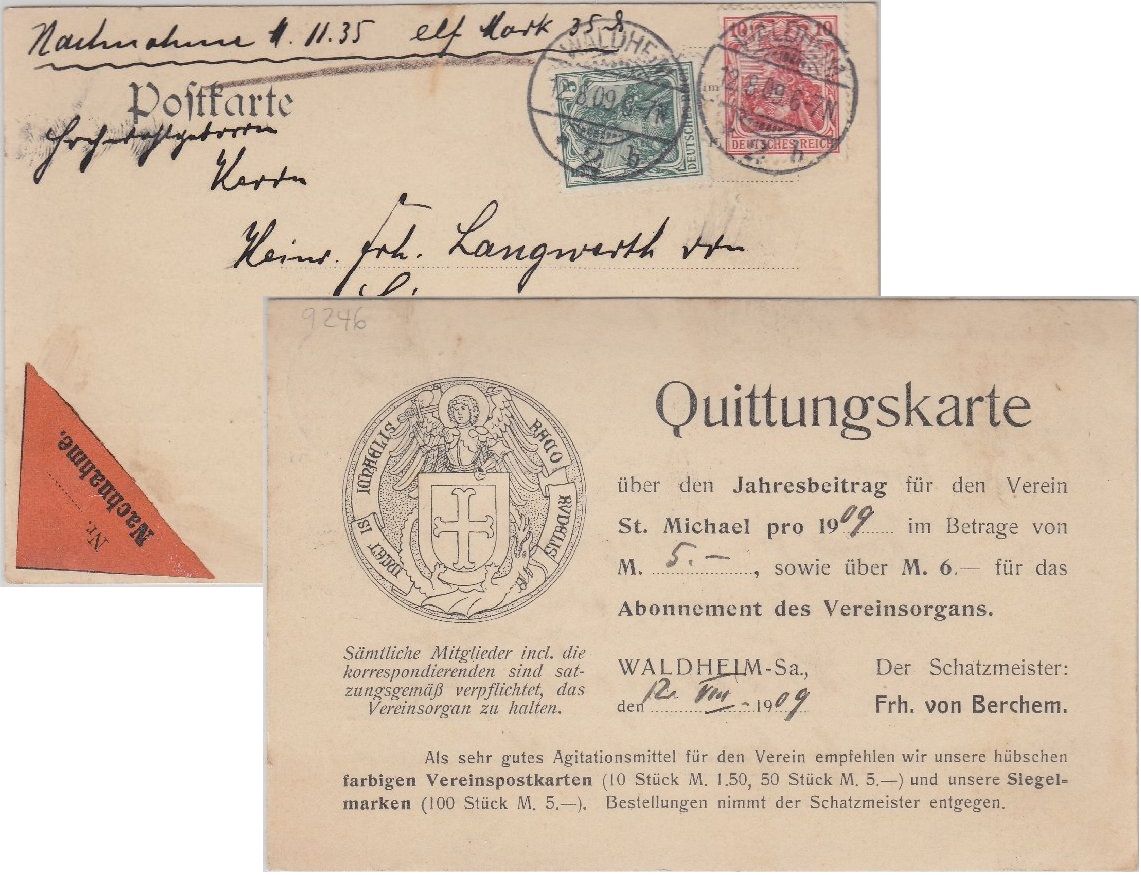 Nachnahme M. 11.35 elf Mark 35 ₰
Postkarte
Hochwohlgeboren
Herrn
Heinr. Frh. Langwerth von
WALDHEIM
12.8.09.6-7N
b
DEUTSCHES
WALDHEIM
12.8.09.6-7N
b
10 10
DEUTSCHES REICH
im
Nachnahme.
Nr.
9246
Quittungskarte
über den Jahresbeitrag für den Verein
St. Michael pro 1909 im Betrage von
M. 5.–, sowie über M. 6.— für das
Abonnement des Vereinsorgans.
Sämtliche Mitglieder incl. die
korrespondierenden sind sat-
zungsgemäß verpflichtet, das
Vereinsorgan zu halten.
WALDHEIM-Sa.,
den 12. VIII. 1909
Der Schatzmeister:
Frh. von Berchem.
Als sehr gutes Agitationsmittel für den Verein empfehlen wir unsere hübschen
farbigen Vereinspostkarten (10 Stück M. 1.50, 50 Stück M. 5.—) und unsere Siegel-
marken (100 Stück M. 5.—). Bestellungen nimmt der Schatzmeister entgegen.